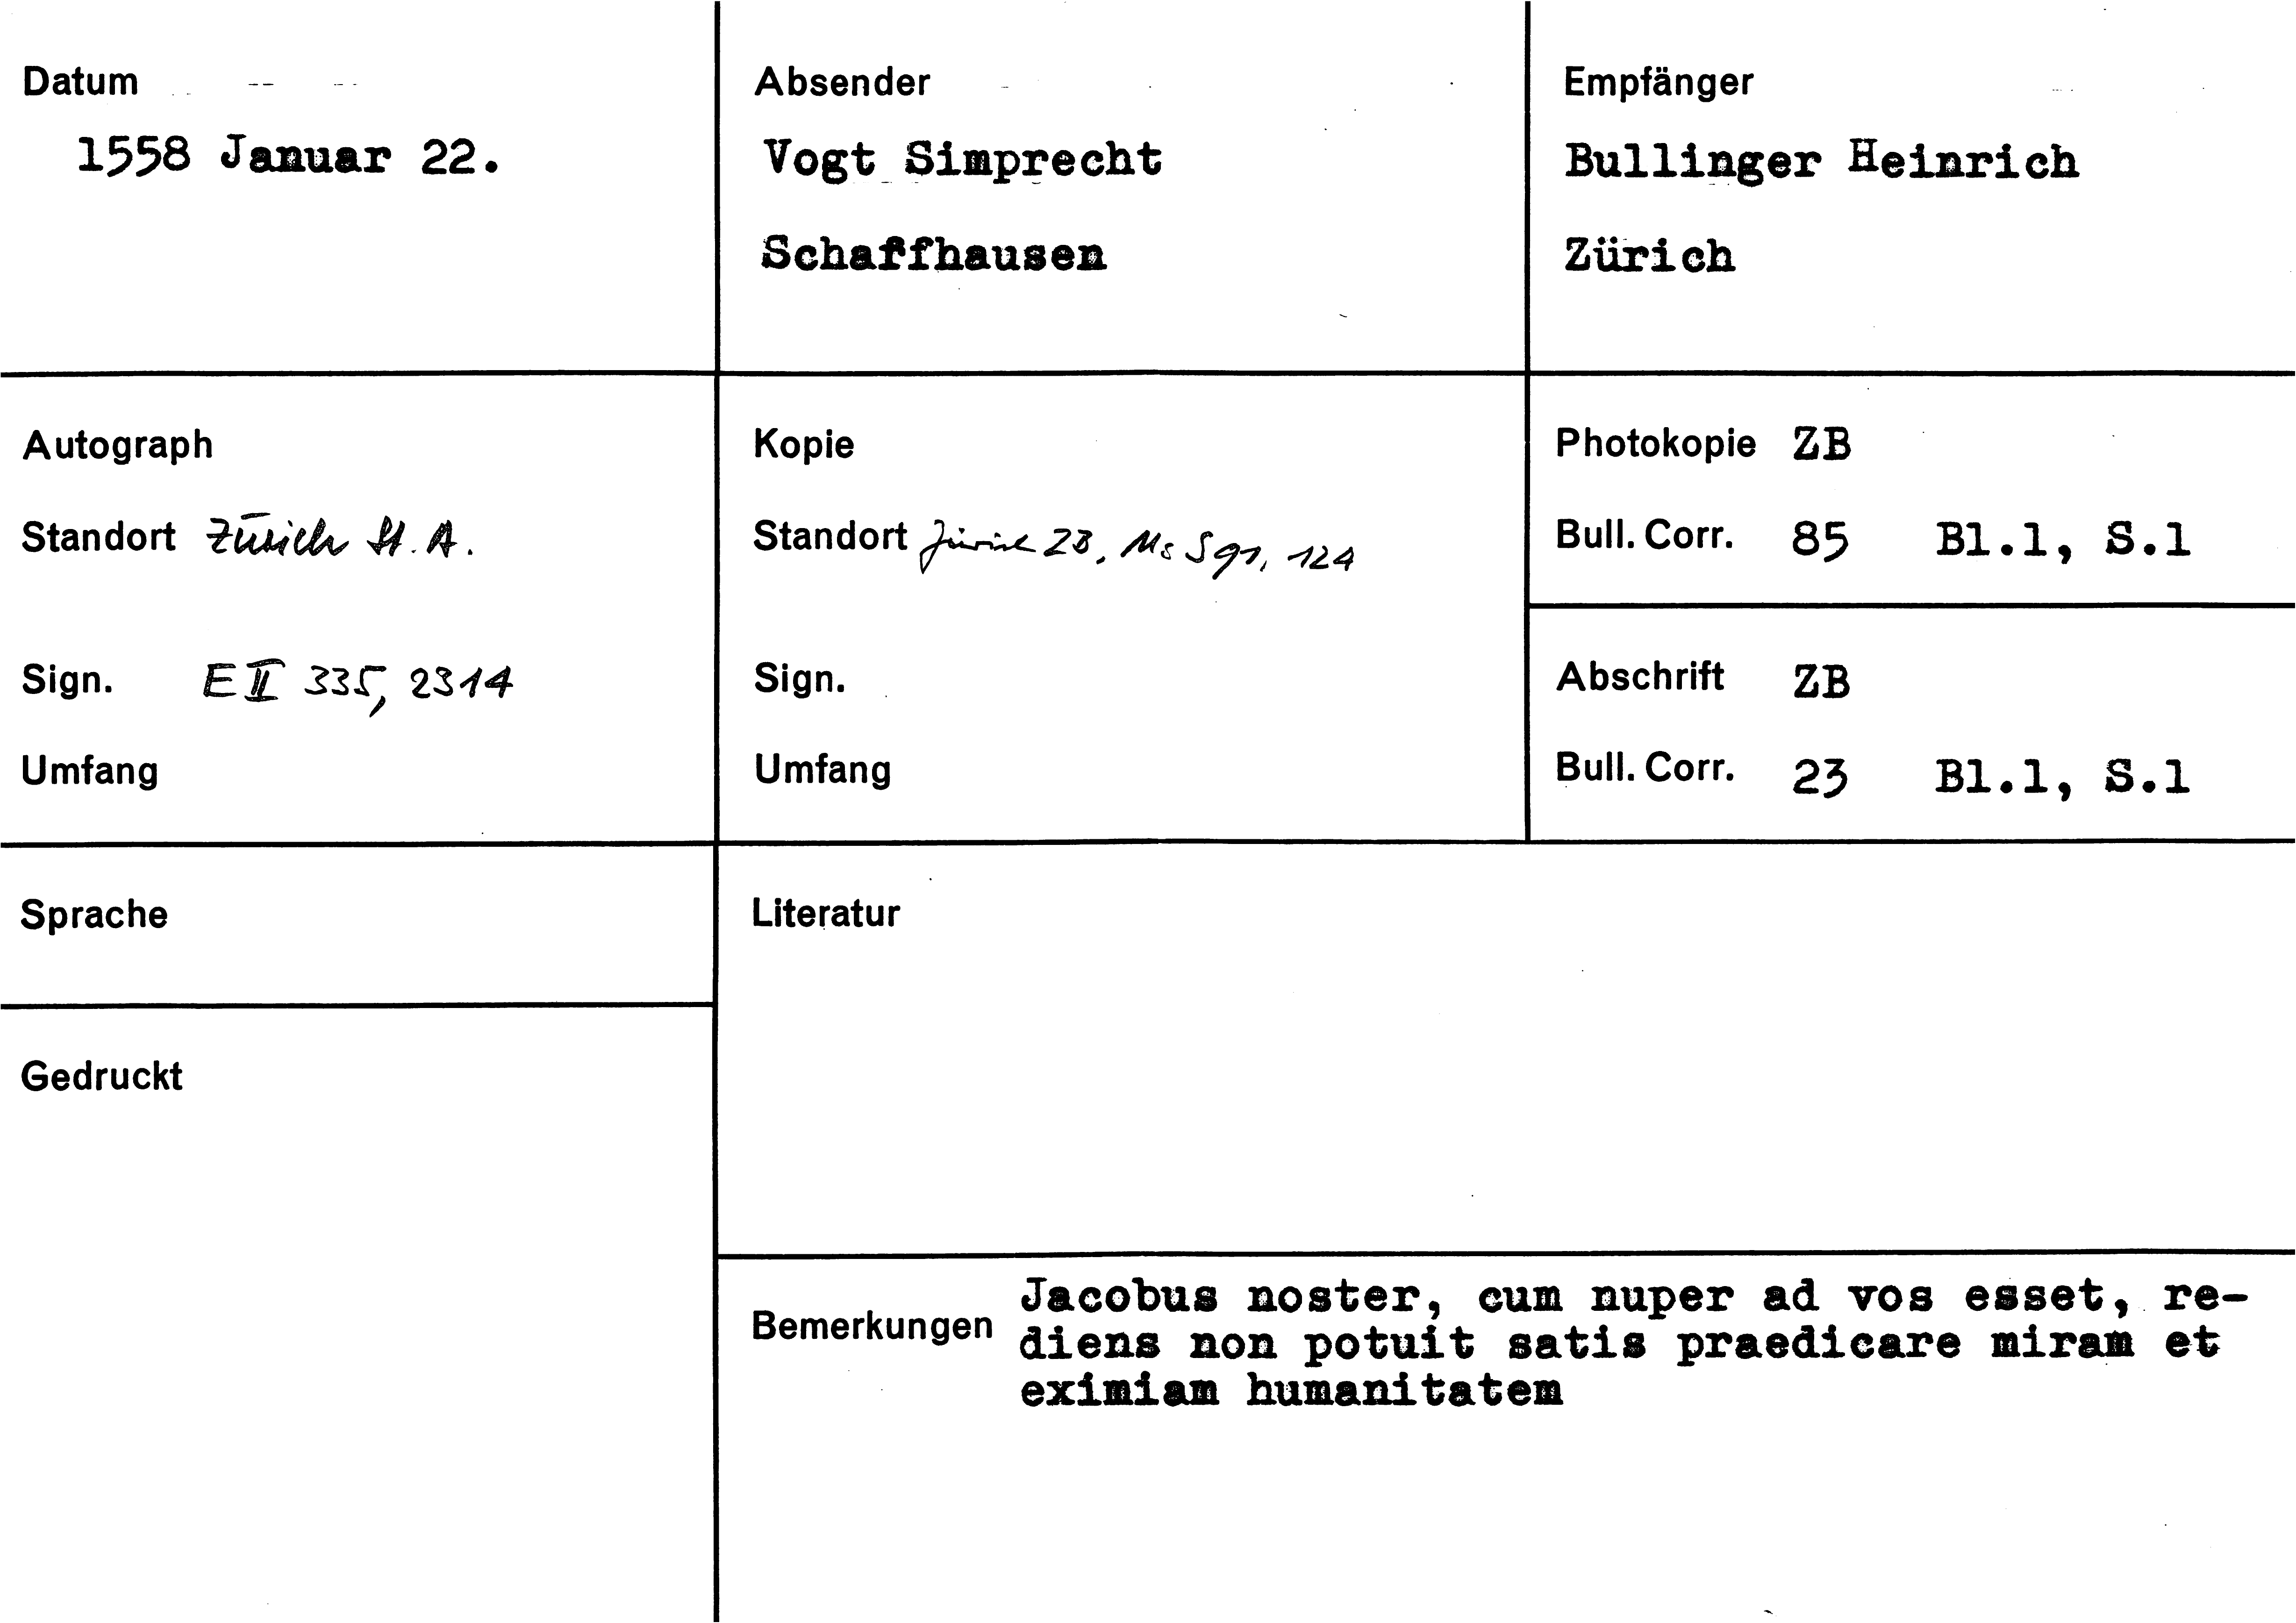 Datum
1558 Januar 22.
Absender
Vogt Simprecht
Schaffhausen
Empfänger
Bullinger Heinrich
Zürich
Autograph
Standort Zürich St. A.
Sign. E II 335, 2314
Umfang
Kopie
Standort Zürich ZB, Ms S 91, 124
Sign.
Umfang
Photokopie ZB
Bull. Corr. 85 Bl.1, S.1
Abschrift ZB
Bull. Corr. 23 Bl.1, S.1
Sprache
Gedruckt
Literatur
Bemerkungen
Jacobus noster, cum nuper ad vos esset, re-
diens non potuit satis praedicare miram et
eximiam humanitatem